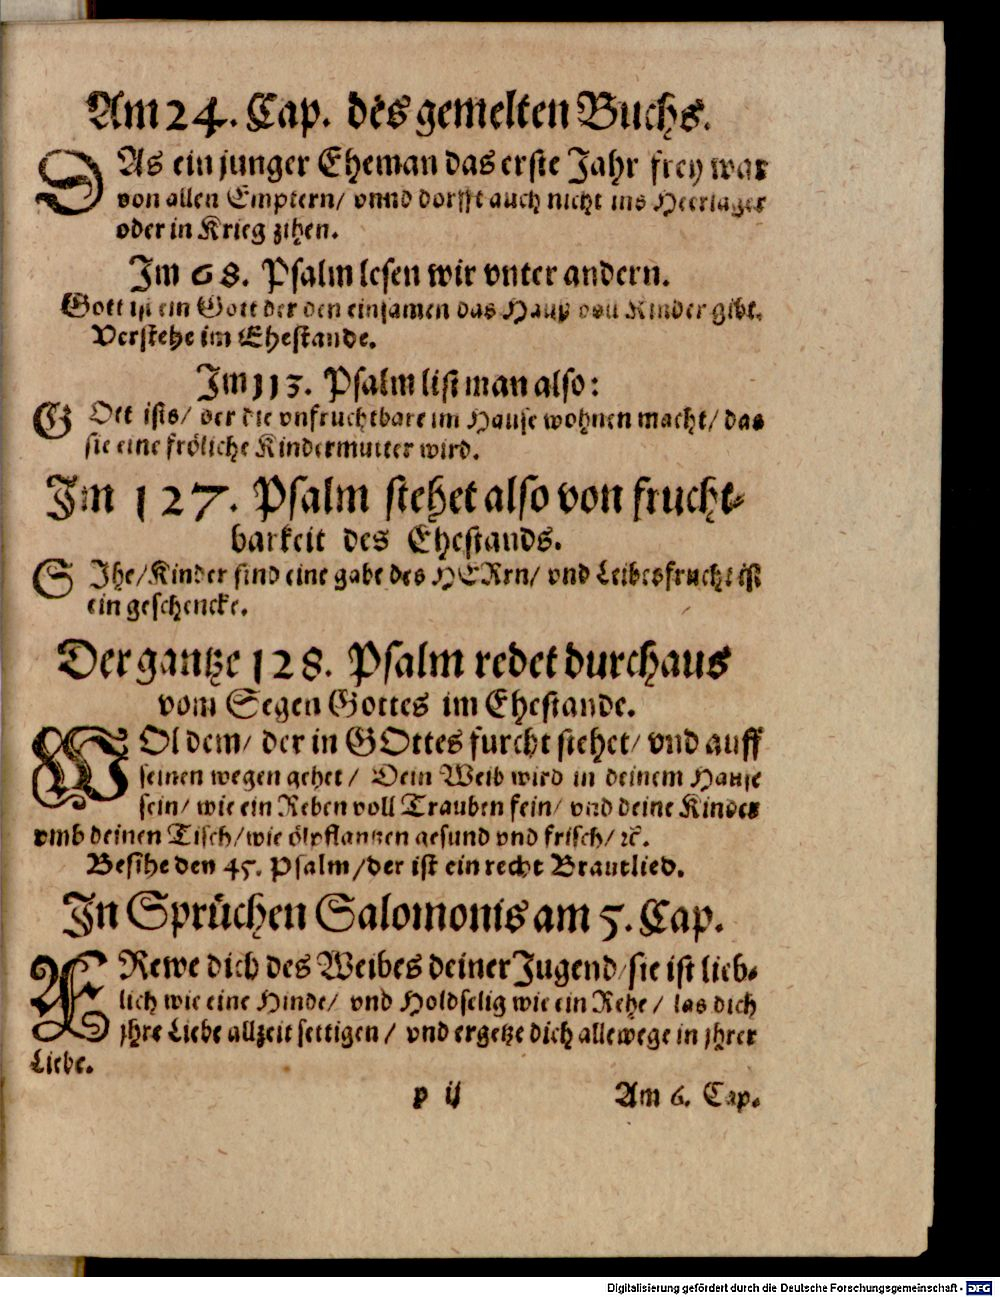 Am 24. Cap. des gemelten Buchs.
DAs ein junger Eheman das erste Jahr frey war
von allen Emptern/ vnnd dorfft auch nicht ins Heerlager
oder in Krieg zihen.
Im 68. Psalm lesen wir vnter andern.
Gott ist ein Gott der den einsamen das Hauß voll Kinder gibt.
Verstehe im Ehestande.
Im 113. Psalm list man also:
GOtt ists/ der die vnfruchtbare im Hause wohnen macht/ das
sie eine fröliche Kindermutter wird.
Im 127. Psalm stehet also von frucht-
barkeit des Ehestands.
SIhe/ Kinder sind eine gabe des HERrn/ vnd Leibesfrucht ist
ein geschencke.
Der gantze 128. Psalm redet durchaus
vom Segen Gottes im Ehestande.
WOl dem/ der in GOttes furcht stehet/ vnd auff
seinen wegen gehet/ Dein Weib wird in deinem Hause
sein/ wie ein Reben voll Trauben fein/ vnd deine Kinder
vmb deinen Tisch/ wie ölpflantzen gesund vnd frisch/ ꝛc.
Besihe den 45. Psalm/ der ist ein recht Brautlied.
In Sprüchen Salomonis am 5. Cap.
FRewe dich des Weibes deiner Jugend/ sie ist lieb-
lich wie eine Hinde/ vnd Holdselig wie ein Rehe/ las dich
jhre Liebe allzeit settigen/ vnd ergetze dich allewege in jhrer
Liebe.
p ij Am 6. Cap.
Digitalisierung gefördert durch die Deutsche Forschungsgemeinschaft - DFG